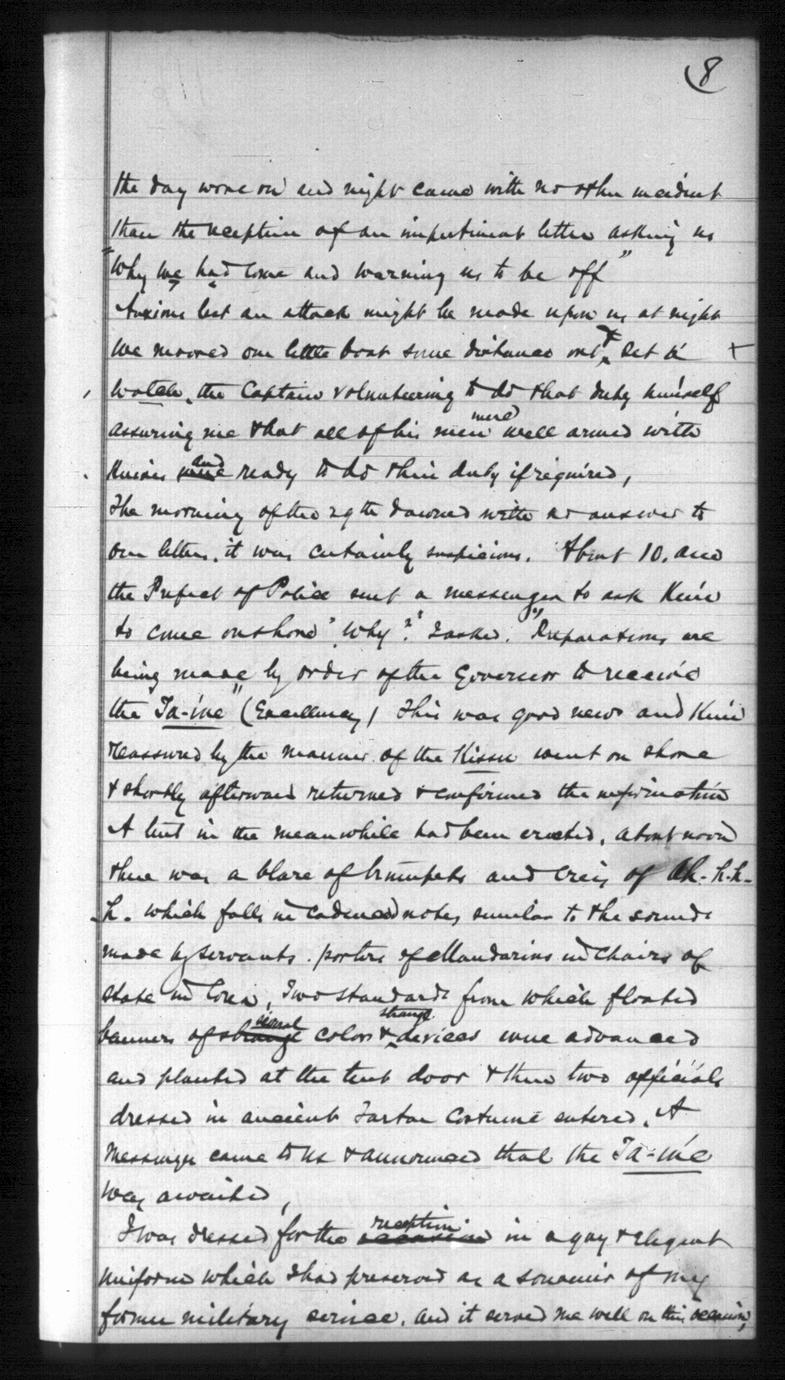 8
the day wore on and night came with no other incident
than the reception of an impertinent letter asking us
"Why we had come and warning us to be off"
Anxious lest an attack might be made upon us at night
we moored our little boat some distance out, set a +
watch, the Captain volunteering to do that duty himself
assuring me that all of his men were well armed with
knives and ready to do their duty if required,
The morning of the 29th dawned with no answer to
our letter. it was certainly suspicious. About 10. am
the Prefect of Police sent a messenger to ask Kim
to come on shore "Why"? I asked. "Preparations are
being made by order of the Governor to receive
the Ta-ine" (Excellency) This was good news and Kim
reassured by the manner of the Kissu went on shore
& shortly afterward returned & confirmed the information
A tent in the meanwhile had been erected, about noon
there was a blare of trumpets and cries of Ah-h-h-
h. which falls in cadenced notes similar to the sounds
made by servants. porters of Mandarins in chairs of
state in Corea, Two standards from which floated
banners of colors & strange devices were advanced
and planted at the tent door & then two officials
dressed in ancient Tartar costume entered. A
messenger came to us & announced that the Ta-ine
was awaited,
I was dressed for the reception in a gay & elegant
uniform which I had preserved as a souvenir of my
former military service. and it served me well on this occasion,